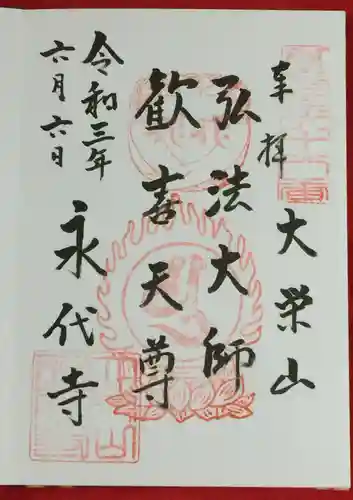 奉拝
大栄山
弘法大師
歓喜天尊
永代寺
令和三年
六月六日